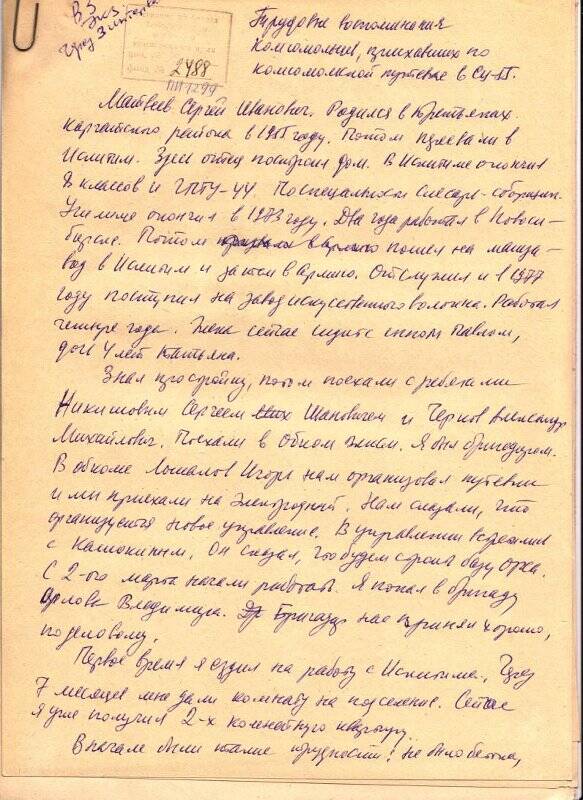 В 3
экз.
Через 3 интервала
2488
Трудовые воспоминания
комсомольцев, приехавших по
комсомольской путевке в СУ-
Матвеев Сергей Иванович. Родился в
Каргатского района в 1955 году. Потом переехали в
Искитим. Здесь отец построил дом. В Искитиме окончил
8 классов и ГПТУ-44. По специальности слесарь-сборщик.
Училище окончил в 1973 году. Два года работал в Новоси-
бирске. Потом пошел на машза-
вод в Искитим и затем в армию. Отслужил и в 1977
году поступил на завод искусственного волокна. Работал
четыре года. Жена сейчас сидит с сыном Павлом,
дочь 4 лет Татьяна.
Знал про стройку, потом поехали с ребятами
Никишовым Сергеем Ивановичем и Чернов Александр
Михайлович. Поехали в Обком ВЛКСМ. Я был бригадиром.
В обкоме Лошалов Игорь нам организовал путевки
и мы приехали на Электродный. Нам сказали, что
организуется новое управление. В управлении встретились
с Калюжиным. Он сказал, что будем строить базу ОРСа.
С 2-го марта начали работать. Я попал в бригаду
Орлова Владимира. Бригадир нас принял хорошо,
по деловому.
Первое время я ездил на работу с Искитима. Через
7 месяцев мне дали комнату на подселение. Сейчас
я уже получил 2-х комнатную квартиру.
Вначале были такие трудности: не было бетона,